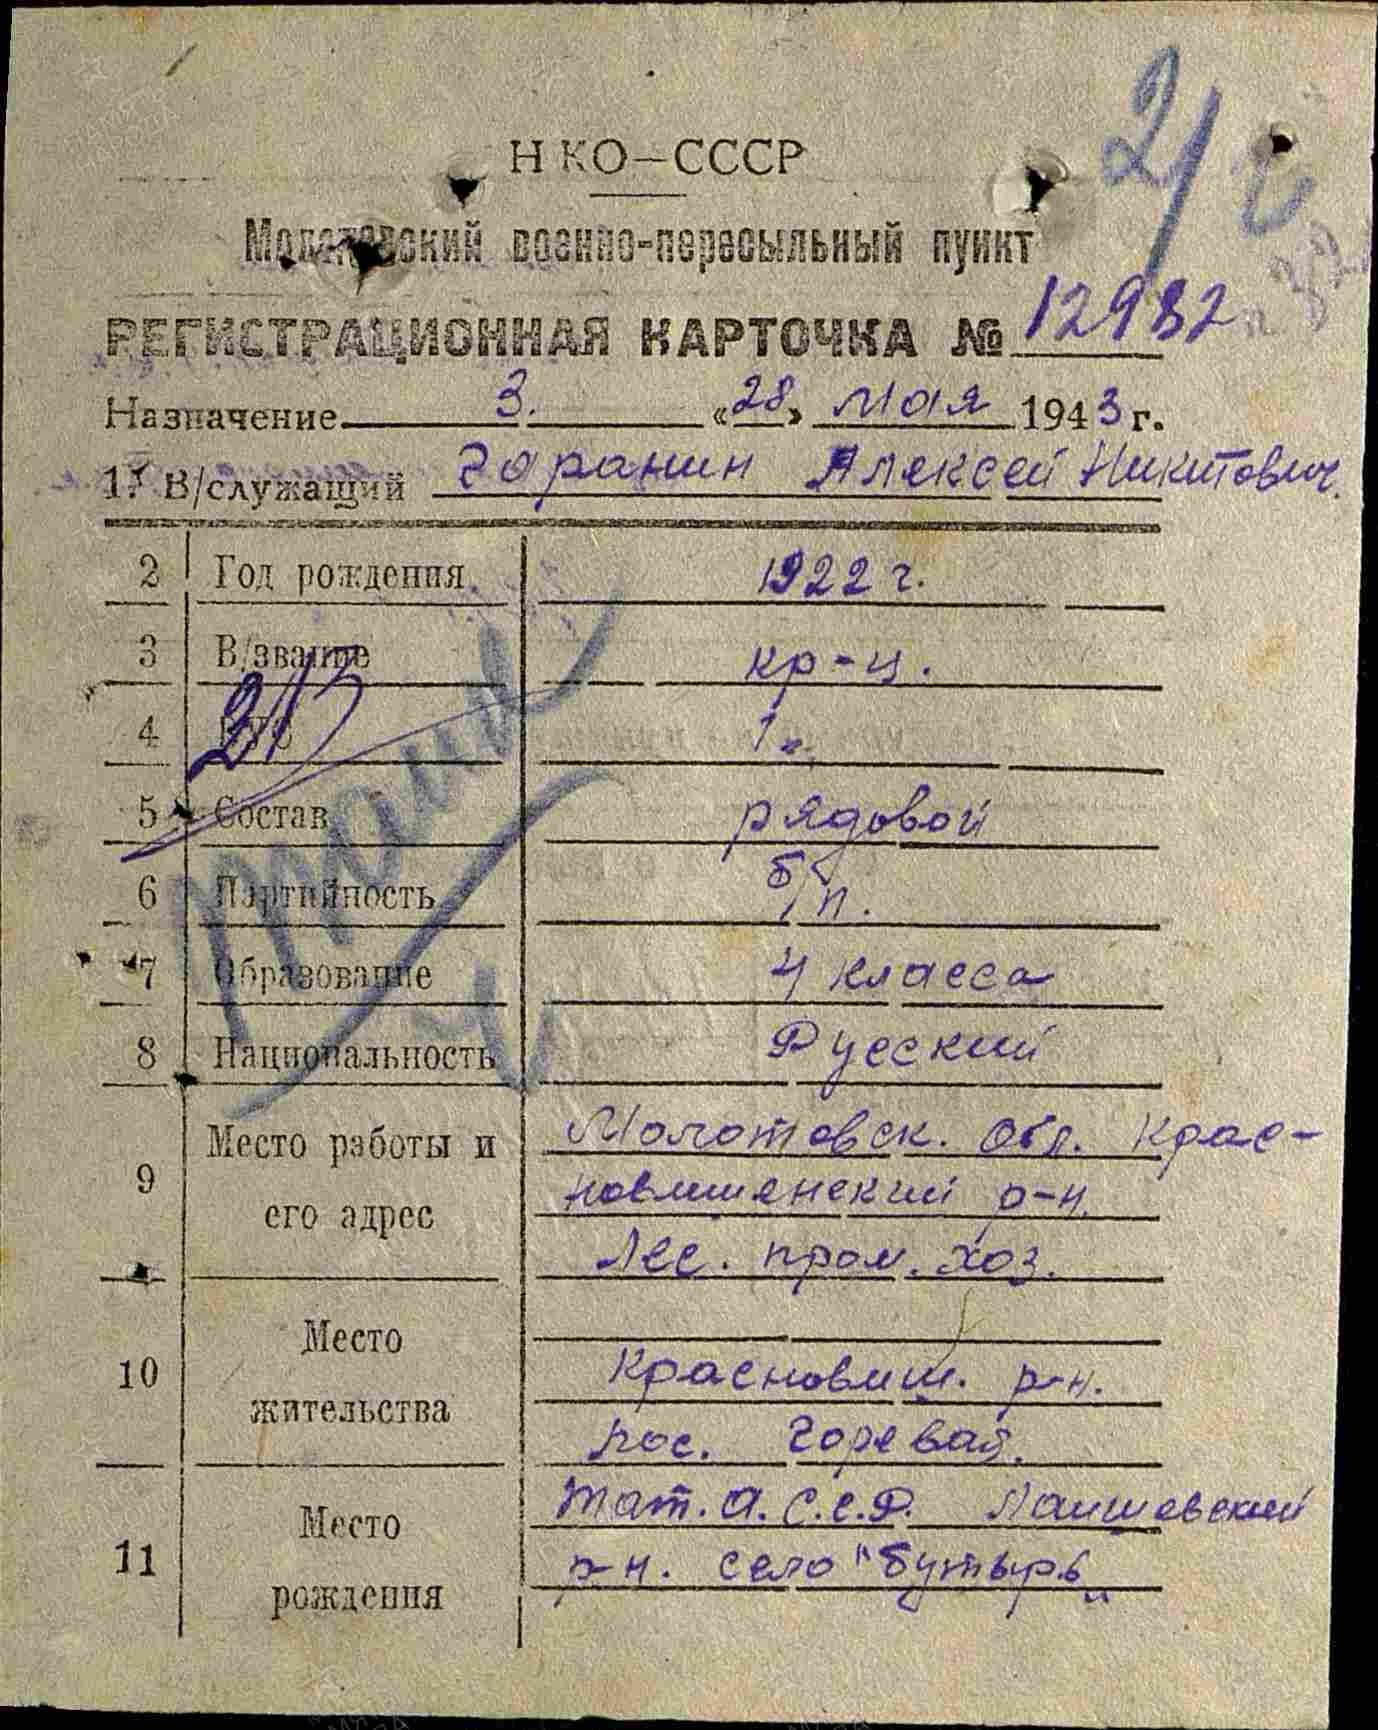 НКО—СССР
Молотовский военно-пересыльный пункт
РЕГИСТРАЦИОННАЯ КАРТОЧКА № 12982
Назначение 3. «28» мая 1943 г.
1. В/служащий Гаранин Алексей Никитович.
2 Год рождения 1922 г.
3 В/звание кр-ц.
4 ВУС 1
5 Состав рядовой
6 Партийность б/п.
7 Образование 4 класса
8 Национальность Русский
9 Место работы и его адрес Молотовск. обл. Крас-
новишенский р-н.
Лес. пром. хоз.
10 Место жительства Красновиш. р-н.
пос. Горевая.
11 Место рождения Тат. А.С.С.Р. Лаишевский
р-н. село "Бутырь"